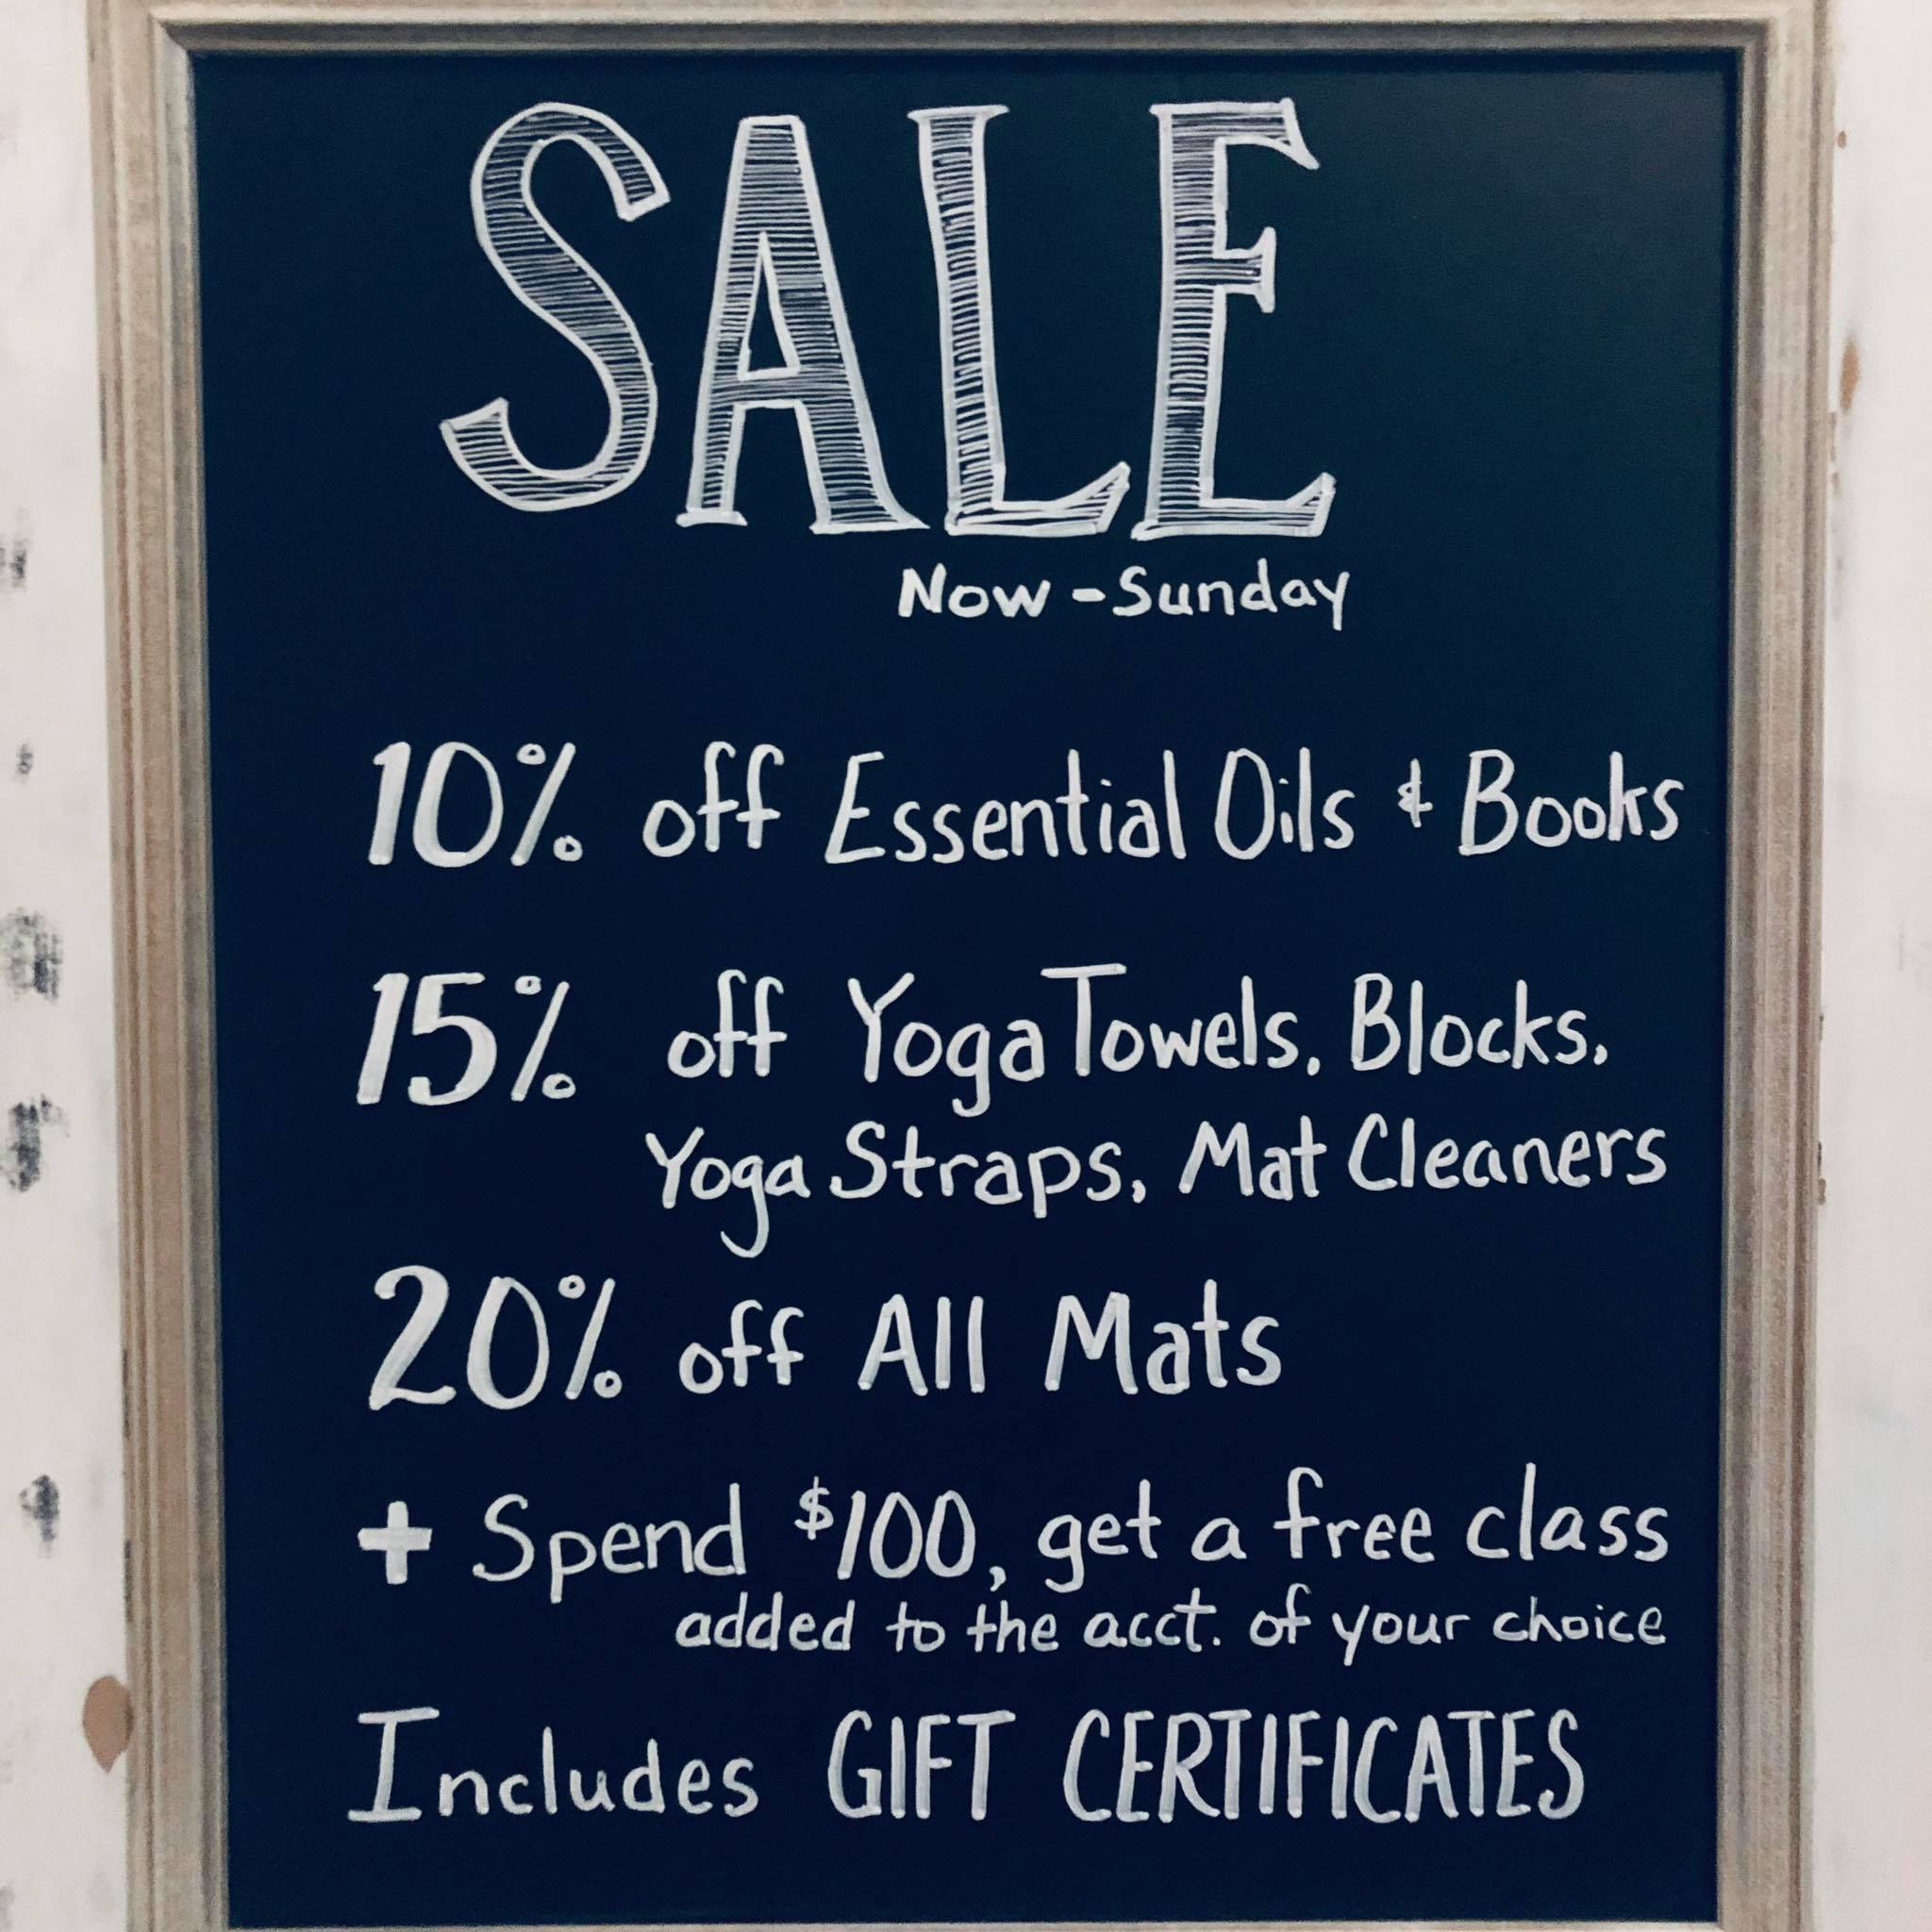 SALE
Now - Sunday
10% off Essential Oils & Books
15% off Yoga Towels, Blocks,
Yoga Straps, Mat Cleaners
20% off All Mats
+ Spend $100, get a free class
added to the acct. of your choice
Includes GIFT CERTIFICATES